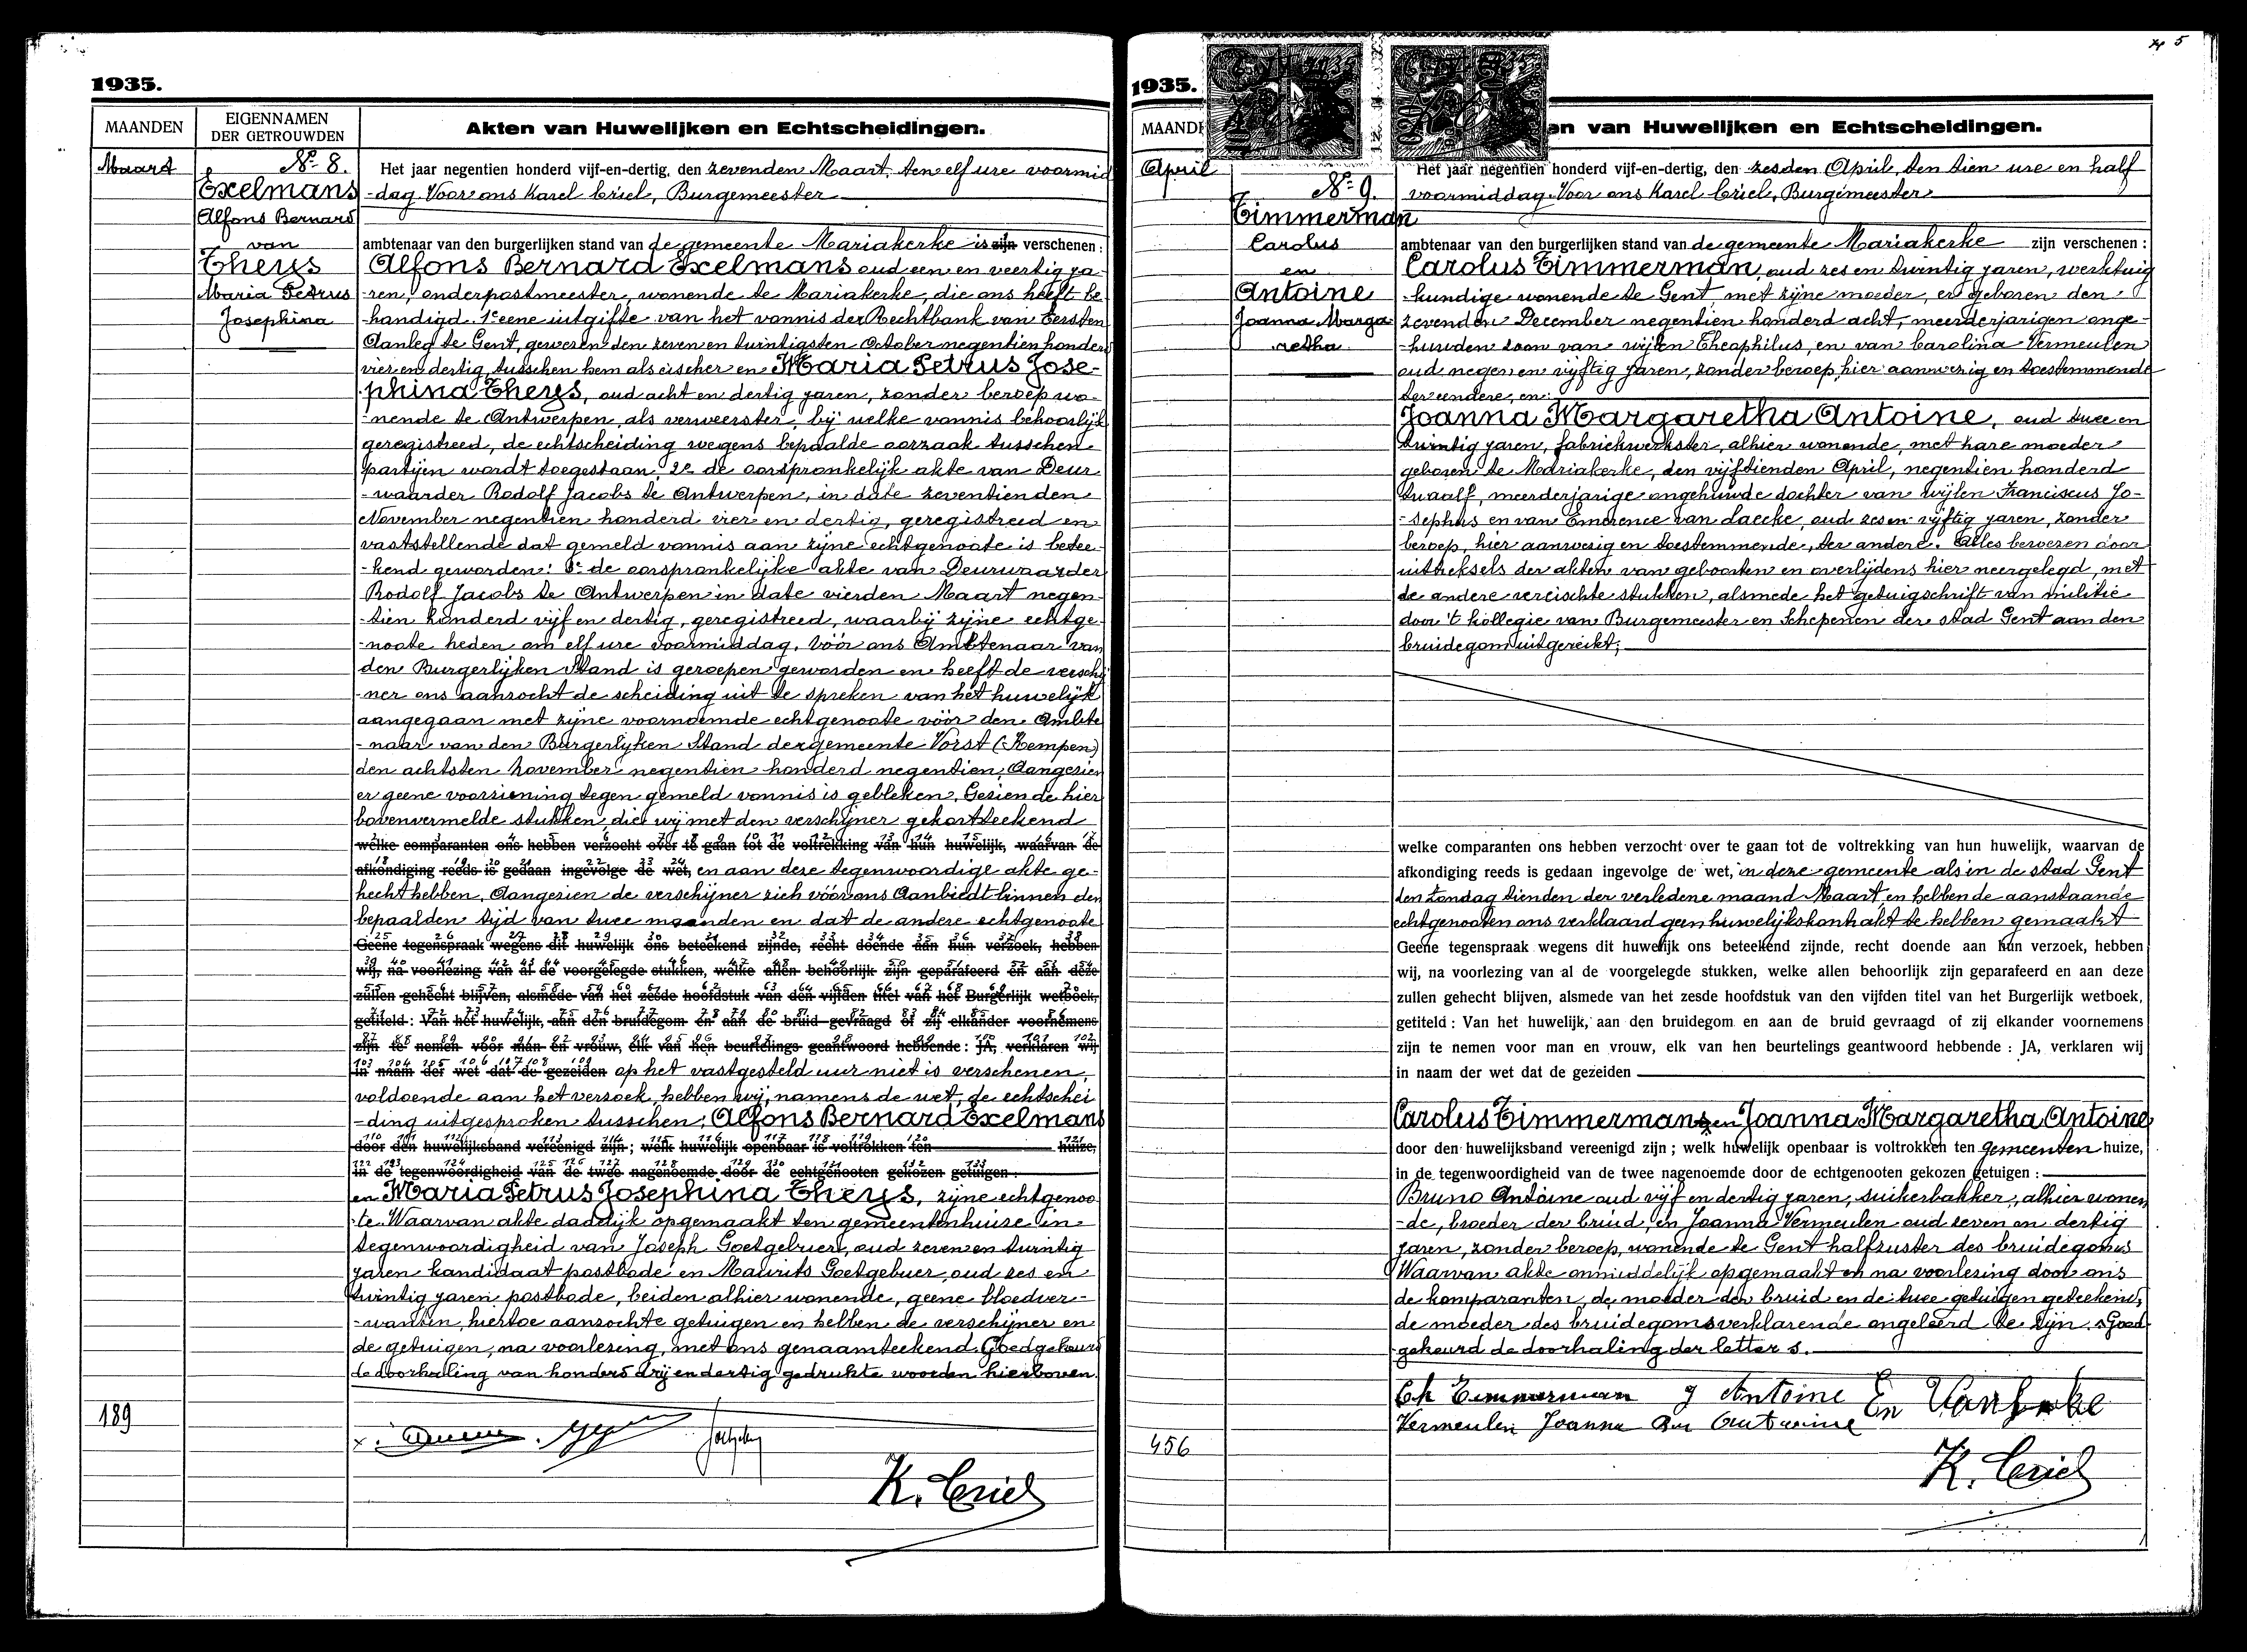 1935.
MAANDEN
EIGENNAMEN
DER GETROUWDEN
Akten van Huwelijken en Echtscheidingen.
Maart
No 8.
Exelmans
Alfons Bernard
van
Theys
Maria Petrus
Josephina
Het jaar negentien honderd vijf-en-dertig, den zevenden Maart, ten elf ure voormid
-dag. Voor ons Karel Criel, Burgemeester
ambtenaar van den burgerlijken stand van de gemeente Mariakerke is zijn verschenen:
Alfons Bernard Exelmans oud een en veertig ja-
-ren, onderpostmeester, wonende te Mariakerke, die ons heeft be-
-handigd 1e eene uitgifte van het vonnis der Rechtbank van Eersten
Aanleg te Gent, gewezen den zeven en twintigsten October negentien honderd
vier en dertig, tusschen hem als eischer en Maria Petrus Jose-
phina Theys, oud acht en dertig jaren, zonder beroep wo-
-nende te Antwerpen, als verweerster, bij welke vonnis behoorlijk
geregistreerd, de echtscheiding wegens bepaalde oorzaak tusschen
partijen wordt toegestaan; 2e de oorspronkelijk akte van Deur
-waarder Rodolf Jacobs te Antwerpen, in date zeventienden
November negentien honderd vier en dertig, geregistreed en
vaststellende dat gemeld vonnis aan zijne echtgenoote is betee-
-kend geworden: 3e de oorspronkelijke akte van Deurwaarder
Rodolf Jacobs te Antwerpen in date vierden Maart negen-
-tien honderd vijf en dertig, geregistreed, waarbij zijne echtge-
-noote heden om elf ure voormiddag, vóór ons Ambtenaar van
den Burgerlijken Stand is geroepen geworden en heeft de verschij
-ner ons aanzocht de scheiding uit te spreken van het huwelijk
aangegaan met zijne voornoemde echtgenoote vóór den Ambte
-naar van den Burgerlijken Stand der gemeente Vorst (Kempen)
den achtsten november negentien honderd negentien. Aangezien
er geene voorziening tegen gemeld vonnis is gebleken. Gezien de hier
bovenvermelde stukken, die wij met den verschijner gekortteekend
welke comparanten ons hebben verzocht over te gaan tot de voltrekking van hun huwelijk, waarvan de
afkondiging reeds is gedaan ingevolge de wet, en aan deze tegenwoordige akte ge-
hecht hebben. Aangezien de verschijner zich vóór ons Aanbiedt binnen den
bepaalden tijd van twee maanden en dat de andere echtgenoote
Geene tegenspraak wegens dit huwelijk ons beteekend zijnde, recht doende aan hun verzoek, hebben
wij, na voorlezing van al de voorgelegde stukken, welke allen behoorlijk zijn geparafeerd en aan deze
zullen gehecht blijven, alsmede van het zesde hoofdstuk van den vijfden titel van het Burgerlijk wetboek,
getiteld: Van het huwelijk, aan den bruidegom en aan de bruid gevraagd of zij elkander voornemens
zijn te nemen voor man en vrouw, elk van hen beurtelings geantwoord hebbende: JA, verklaren wij
in naam der wet dat de gezeiden op het vastgesteld uur niet is verschenen,
voldoende aan het verzoek, hebben wij, namens de wet, de echtschei
-ding uitgesproken tusschen: Alfons Bernard Exelmans
door den huwelijksband vereenigd zijn; welk huwelijk openbaar is voltrokken ten huize,
in de tegenwoordigheid van de twee nagenoemde door de echtgenooten gekozen getuigen:
en Maria Petrus Josephina Theys, zijne echtgenoo
te. Waarvan akte dadelijk opgemaakt ten gemeentenhuize in
tegenwoordigheid van Joseph Goetgebuer, oud zeven en twintig
jaren kandidaat postbode en Maurits Goetgebuer, oud zes en
twintig jaren postbode, beiden alhier wonende, geene bloedver-
-wanten, hiertoe aanzochte getuigen en hebben de verschijner en
de getuigen, na voorlezing, met ons genaamteekend. Goedgekeurd
de doorhaling van honderd drij en dertig gedrukte woorden hierboven.
189
K. Criel
5
1935.
en van Huwelijken en Echtscheidingen.
April
No 9.
Timmerman
Carolus
en
Antoine
Joanna Marga
retha
Het jaar negentien honderd vijf-en-dertig, den zesden April, ten tien ure en half
voormiddag. Voor ons Karel Criel, Burgemeester
ambtenaar van den burgerlijken stand van de gemeente Mariakerke zijn verschenen:
Carolus Timmerman, oud zes en twintig jaren, werktuig
-kundige wonende te Gent, met zijne moeder, er geboren den
zevenden December negentien honderd acht, meerderjarigen onge-
-huwden zoon van wijlen Theophilus, en van Carolina Vermeulen
oud negen en vijftig jaren, zonder beroep, hier aanwezig en toestemmende
ter eendere, en:
Joanna Margaretha Antoine, oud twee en
twintig jaren, fabriekwerkster, alhier wonende, met hare moeder
geboren te Mariakerke, den vijftienden April, negentien honderd
twaalf, meerderjarige ongehuwde dochter van wijlen Franciscus Jo-
-sephus en van Emerence van Laecke, oud zes en vijftig jaren, zonder
beroep, hier aanwezig en toestemmende, ter andere. Alles bewezen door
uittreksels der akten van geboorten en overlijdens hier neergelegd, met
de andere vereischte stukken, alsmede het getuigschrift van militie
door 't kollegie van Burgemeester en Schepenen der stad Gent aan den
bruidegom uitgereikt;
welke comparanten ons hebben verzocht over te gaan tot de voltrekking van hun huwelijk, waarvan de
afkondiging reeds is gedaan ingevolge de wet, in deze gemeente als in de stad Gent
den Zondag tienden der verledene maand Maart en hebben de aanstaande
echtgenooten ons verklaard geen huwelijkskontrakt te hebben gemaakt
Geene tegenspraak wegens dit huwelijk ons beteekend zijnde, recht doende aan hun verzoek, hebben
wij, na voorlezing van al de voorgelegde stukken, welke allen behoorlijk zijn geparafeerd en aan deze
zullen gehecht blijven, alsmede van het zesde hoofdstuk van den vijfden titel van het Burgerlijk wetboek,
getiteld: Van het huwelijk, aan den bruidegom en aan de bruid gevraagd of zij elkander voornemens
zijn te nemen voor man en vrouw, elk van hen beurtelings geantwoord hebbende: JA, verklaren wij
in naam der wet dat de gezeiden
Carolus Timmermans en Joanna Margaretha Antoine
door den huwelijksband vereenigd zijn; welk huwelijk openbaar is voltrokken ten gemeenten huize,
in de tegenwoordigheid van de twee nagenoemde door de echtgenooten gekozen getuigen:
Bruno Antoine oud vijf en dertig jaren, suikerbakker, alhier wonen
-de, broeder der bruid, en Joanna Vermeulen oud zeven en dertig
jaren, zonder beroep, wonende te Gent halfzuster des bruidegoms
Waarvan akte onmiddelijk opgemaakt en na voorlezing door ons
de komparanten, de moeder der bruid en de twee getuigen geteekend,
de moeder des bruidegoms verklarende ongeleerd te zijn. Goed-
gekeurd de doorhaling der letter s.
Ch Timmerman J Antoine Em Van Laeke
Vermeulen Joanna Br Antoine
456
K. Criel